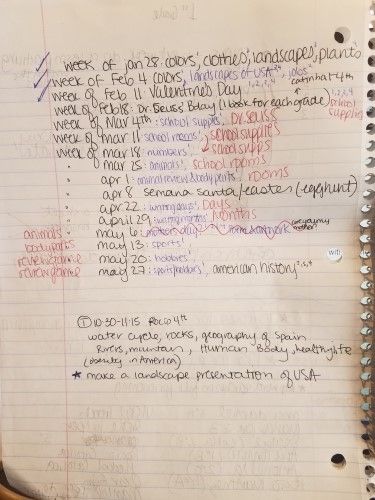 week of jan 28: colors¹, clothes², landscapes³, plants
week of Feb 4: colors¹, landscapes of USA²⁴, jobs²
week of Feb 11: Valentine's Day 1, 2, 4, 3
cat in hat 4th
week of Feb 18: Dr. Seuss Bday (1 book for each grade) 1, 2, 3, 4 school supplies
week of Mar 4th: school supplies¹, Dr. Seuss
week of mar 11: school rooms¹, school supplies
week of mar 18: numbers¹, school supplies
" mar 25: animals¹, school rooms
" apr 1: animal review & body parts, rooms
" apr 8 semana santa/easter (egg hunt)
" apr 22: writing days¹, Days
" april 29: writing months¹, Months
animals " may 6: are you my mother?
body parts " may 13: sports¹
review game " may 20: hobbies¹
review game " may 27: sports/hobbies¹, american history
① 10:30-11:15 Rocio 4th
water cycle, rocks, geography of Spain
Rivers, mountain, Human Body, healthy life
(obesity in America)
★ make a landscape presentation of USA